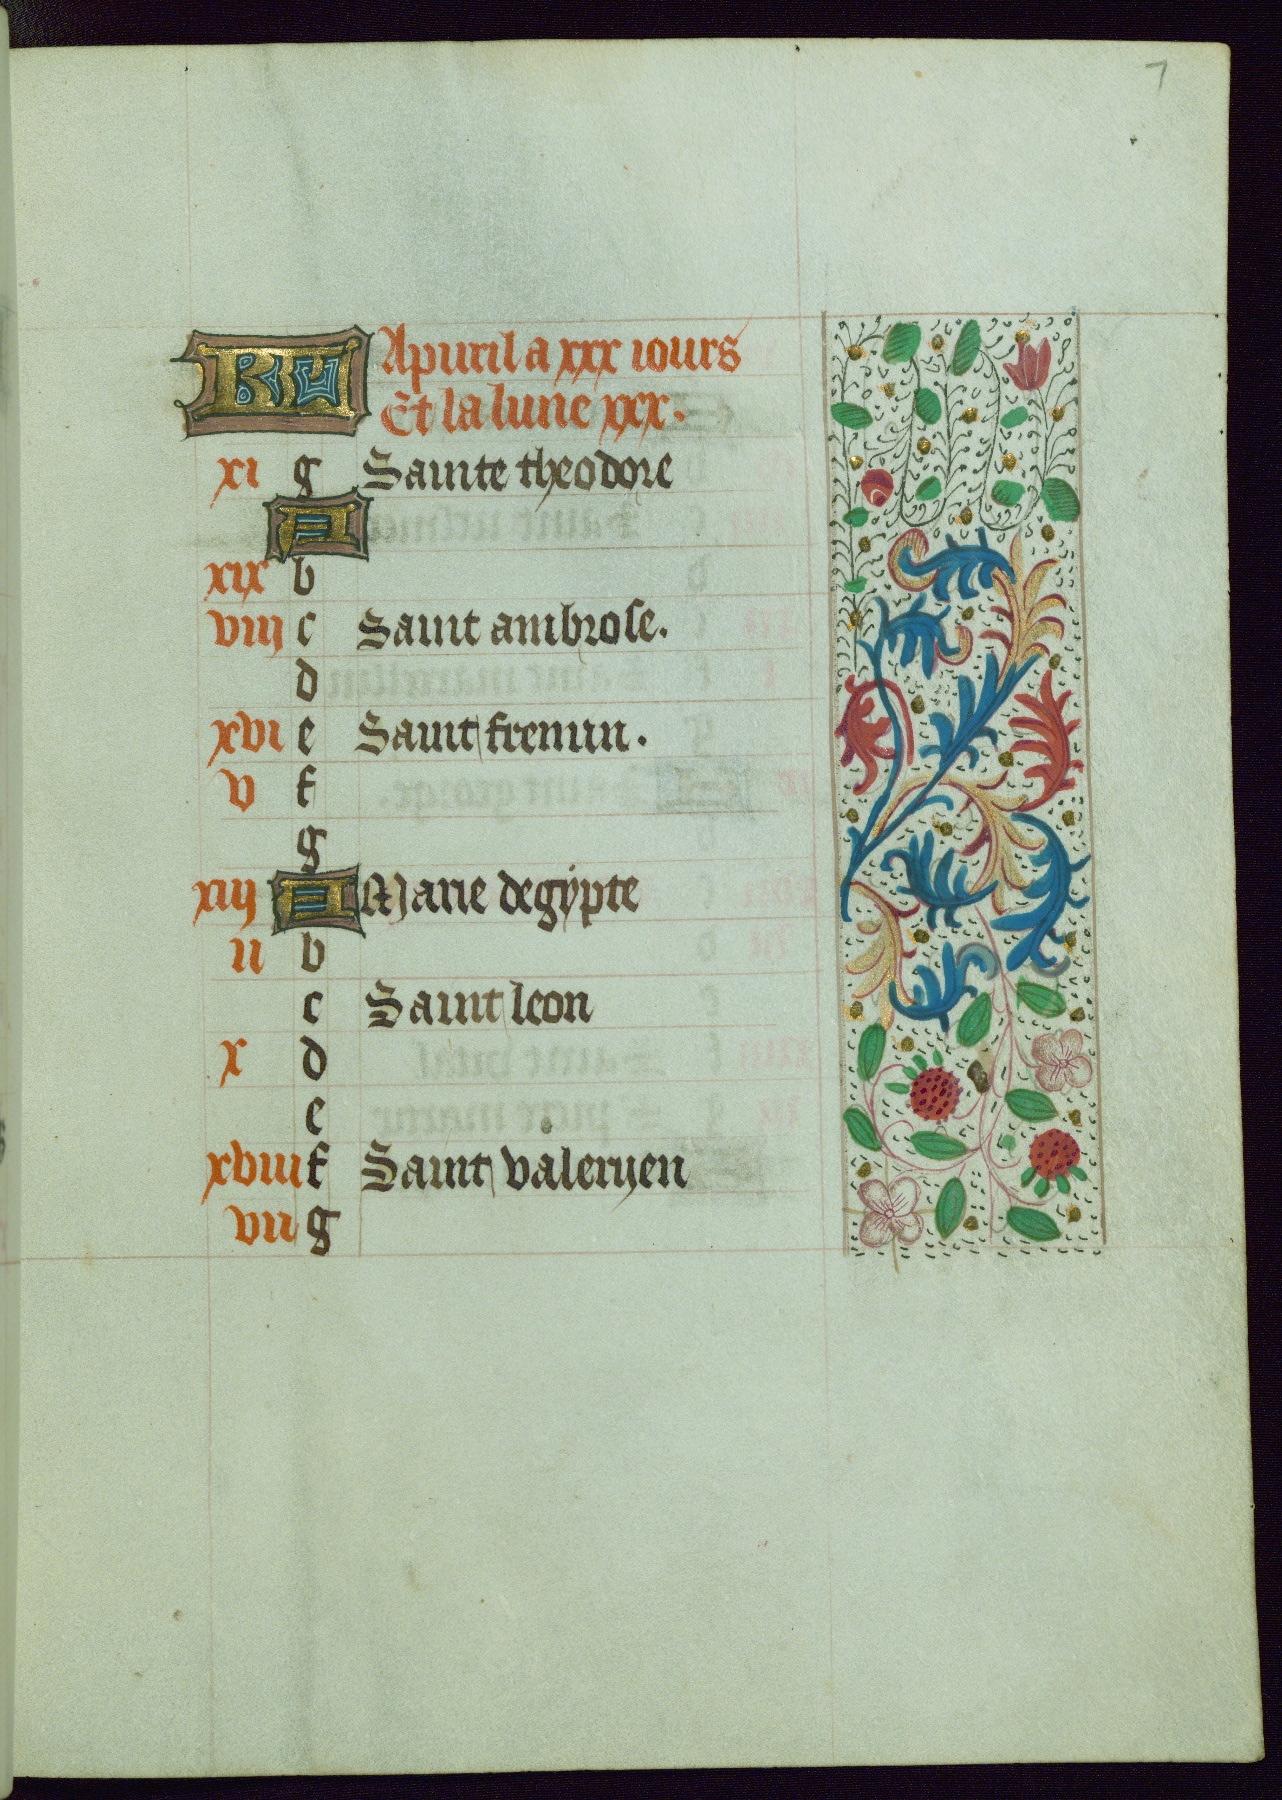 7
KL Apuril a xxx iours
Et la lune xxx.
xi g Sainte theodore
A
xix b
viii c Saint ambrose.
d
xvi e Saint fremin.
v f
g
xiii A Marie degypte
ii b
c Saint leon
x d
e
xviii f Saint valeryen
vii g